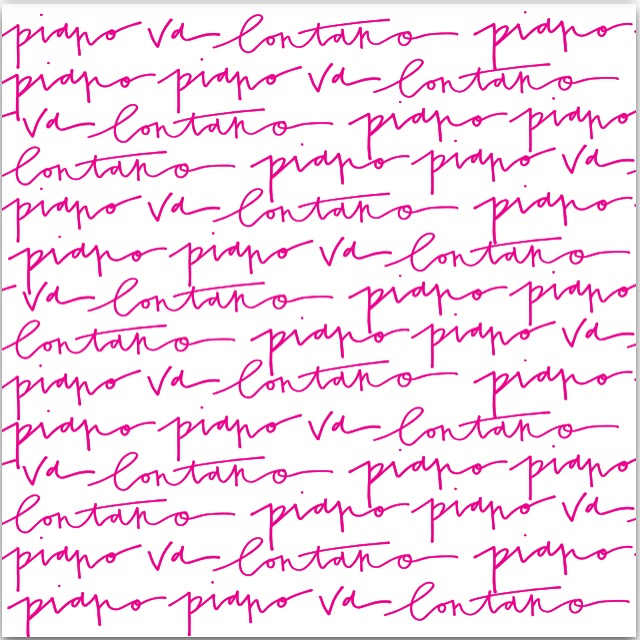 piano va lontano piano
piano piano va lontano
va lontano piano piano
lontano piano piano va
piano va lontano piano
piano piano va lontano
va lontano piano piano
lontano piano piano va
piano va lontano piano
piano piano va lontano
va lontano piano piano
lontano piano piano va
piano va lontano piano
piano piano va lontano